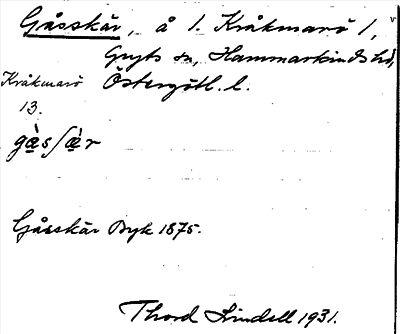 Gåsskär, å l. Kråkmarö 1,
Gryts sn, Hammarkinds hd,
Kråkmarö Östergötl. l.
13.
gàsʃæ̀r
Gåsskär Byk 1875.
Thord Lindell 1931.